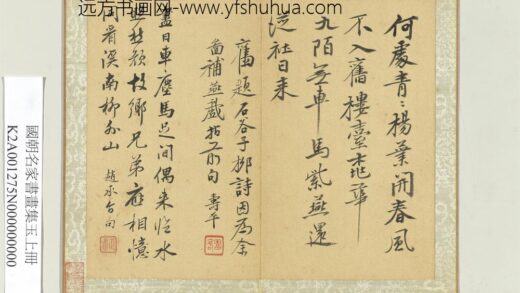 远方书画网-www.yfshuhua.com
何處青〻楊葉開春風
不入舊樓臺華
九陌無車馬紫燕還
從社日來
舊題石谷子柳詩因為余
畵補燕戲拈句 壽平
盡日車塵馬足間偶來臨水
照愁顏故鄉兄弟應相憶
同看溪南柳外山 趙承旨句
國朝名家書畫集玉上冊
K2A001275N000000000